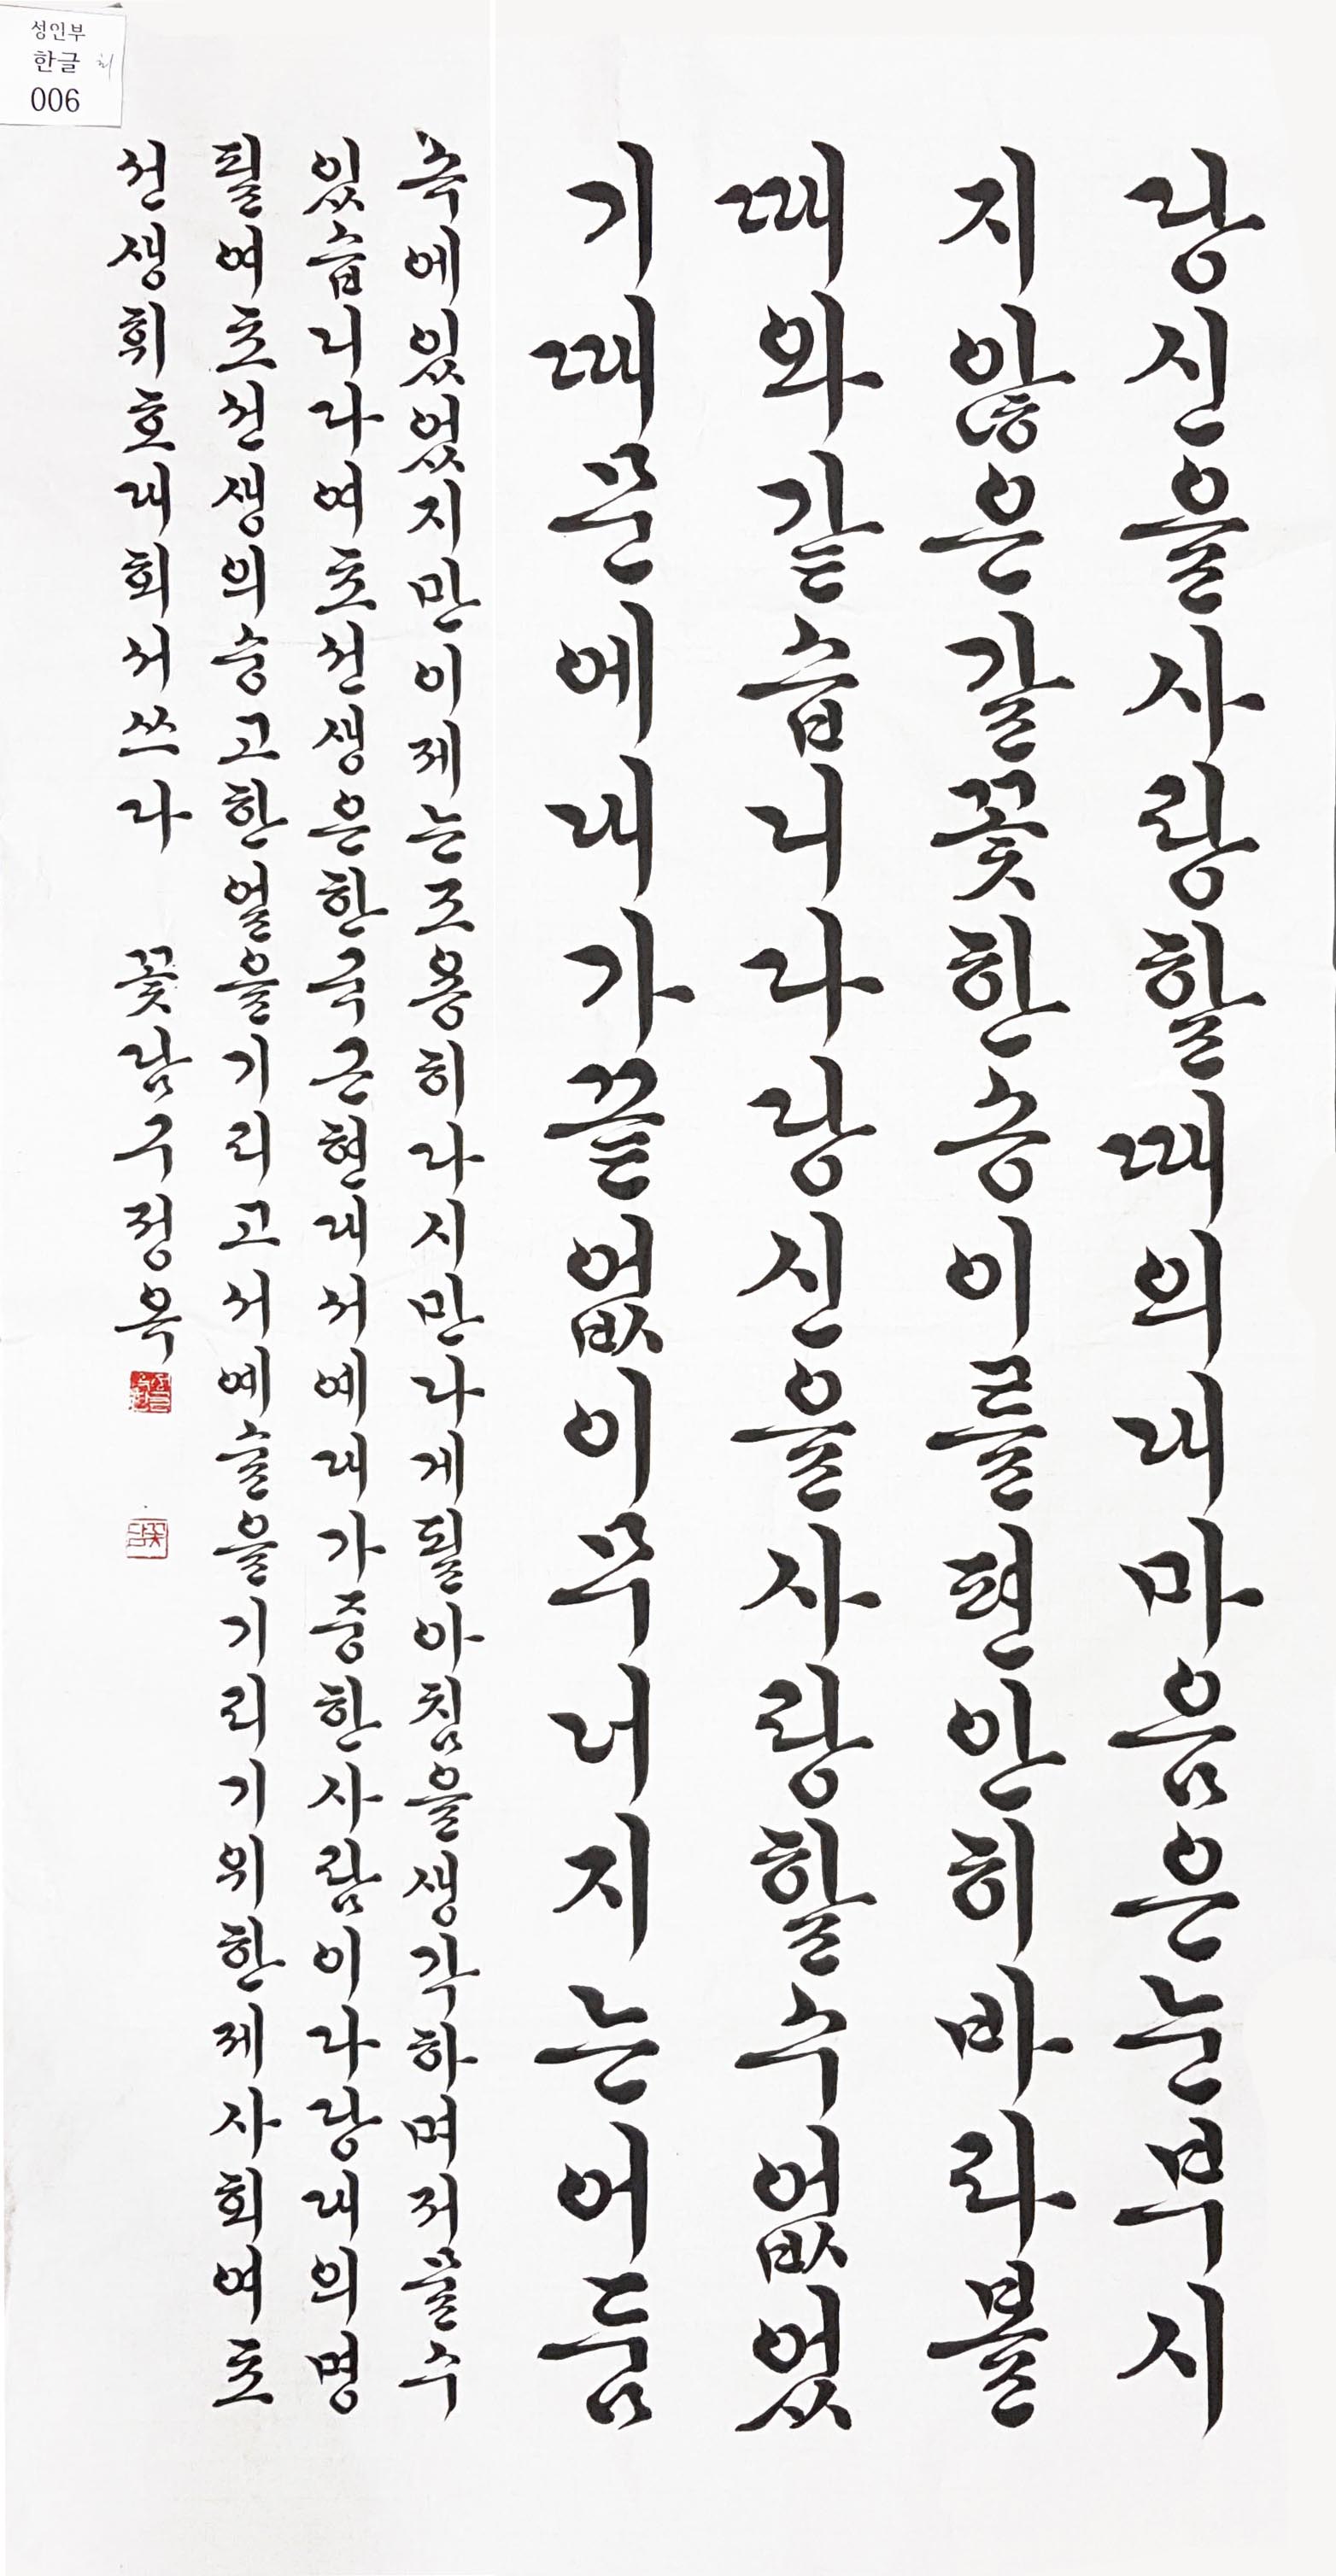 성인부
한글
006
당신을사랑할때의내마음은눈부시
지않은갈꽃한송이를편안히바라볼
때와같습니다당신을사랑할수없었
기때문에내가끝없이무너지는어둠
속에있었지만이제는조용히다시만나게될아침을생각하며저물수
있습니다여초선생은한국근현대서예대가중한사람이다당대의명
필여초선생의숭고한얼을기리고서예술을기리기위한제사회여초
선생휘호대회서쓰다 꽃담구정옥